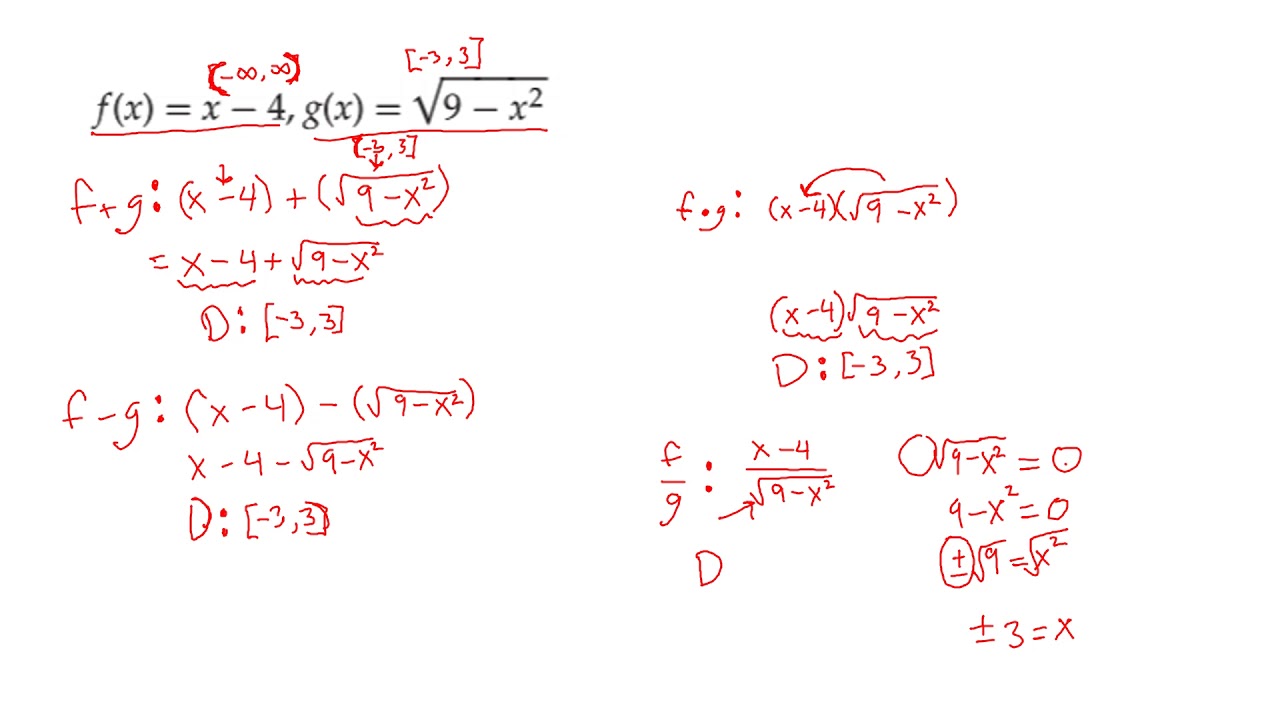 (-∞, ∞) [-3, 3]
f(x) = x − 4, g(x) = √9 − x²
[-3, 3]
f+g: (x-4) + (√9-x²)
= x-4+√9-x²
D: [-3,3]
f-g: (x-4) - (√9-x²)
x-4-√9-x²
D: [-3,3]
f•g: (x-4)(√9-x²)
(x-4)√9-x²
D: [-3,3]
f/g: x-4/√9-x²
D
√9-x² = 0
9-x² = 0
±√9 = √x²
±3 = x